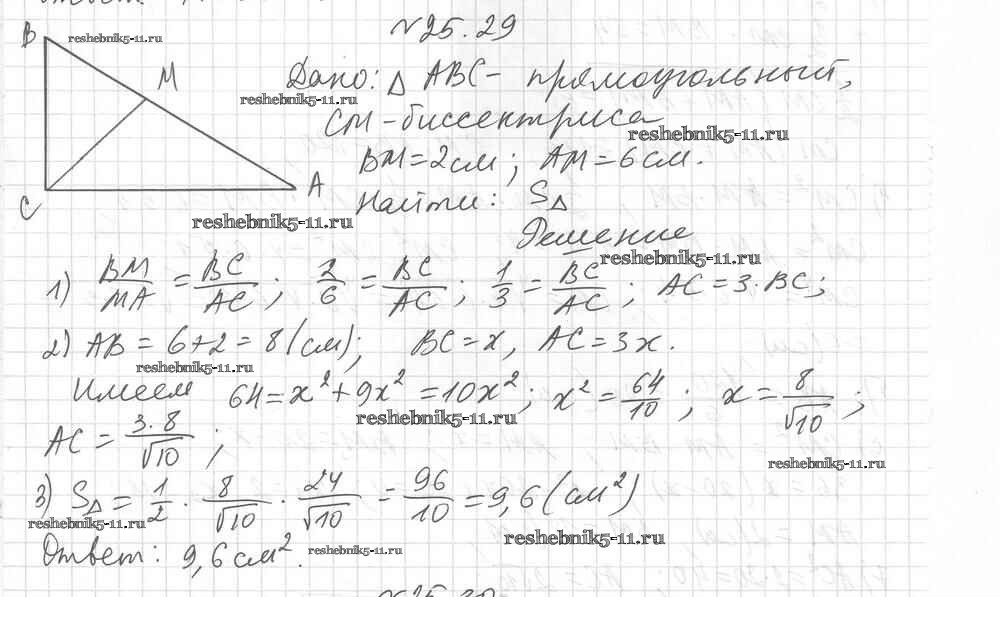 №25.29
B
reshebnik5-11.ru
M
Дано: Δ ABC - прямоугольный,
reshebnik5-11.ru
CM - биссектриса
reshebnik5-11.ru
BM = 2 см; AM = 6 см.
A
Найти: SΔ
C
reshebnik5-11.ru
Решение
reshebnik5-11.ru
1) BM/MA = BC/AC; 2/6 = BC/AC; 1/3 = BC/AC; AC = 3·BC;
2) AB = 6+2 = 8 (см); BC = x, AC = 3x.
reshebnik5-11.ru
Имеем 64 = x² + 9x² = 10x²; x² = 64/10; x = 8/√10;
reshebnik5-11.ru
AC = 3·8/√10;
reshebnik5-11.ru
3) SΔ = 1/2 · 8/√10 · 24/√10 = 96/10 = 9,6 (см²)
reshebnik5-11.ru
reshebnik5-11.ru
Ответ: 9,6 см².
reshebnik5-11.ru